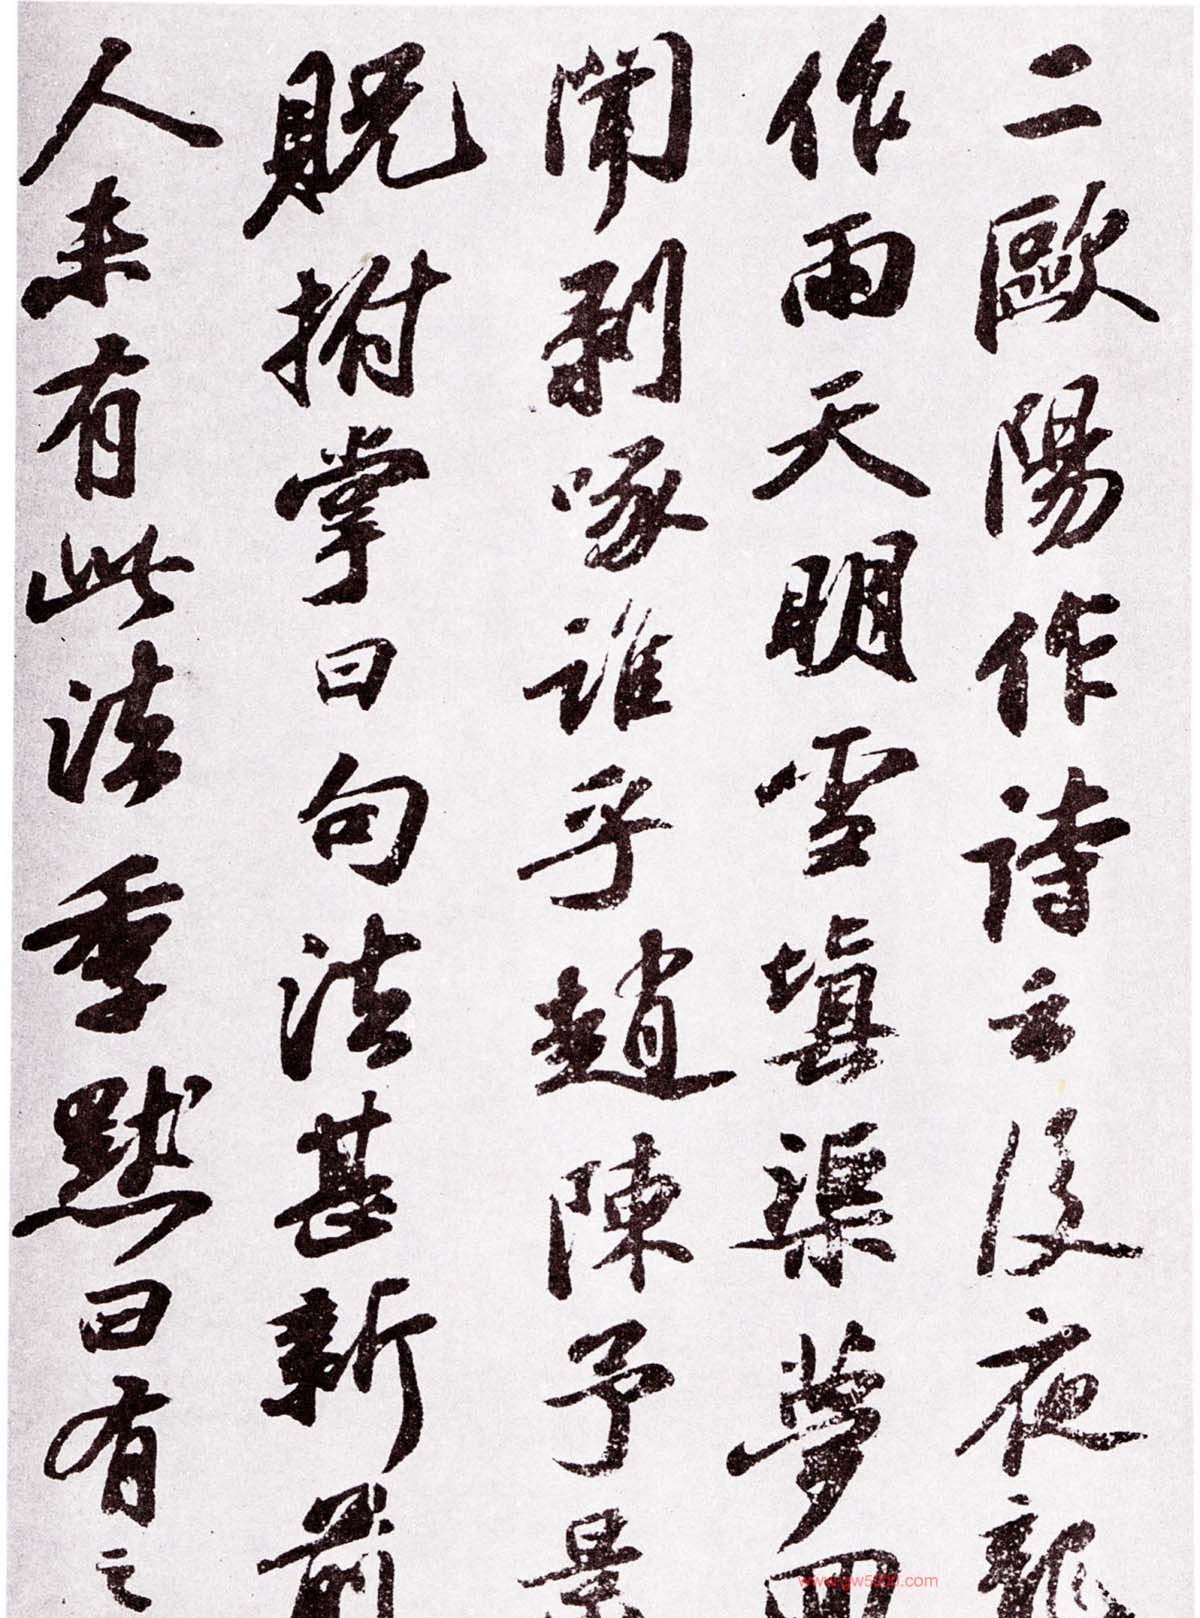 二歐陽作詩云後夜龍
作雨天明雪填渠夢回
聞剝啄誰乎趙陳予景
貺拊掌曰句法甚新前
人未有此法季默曰有之
www.gw5000.com